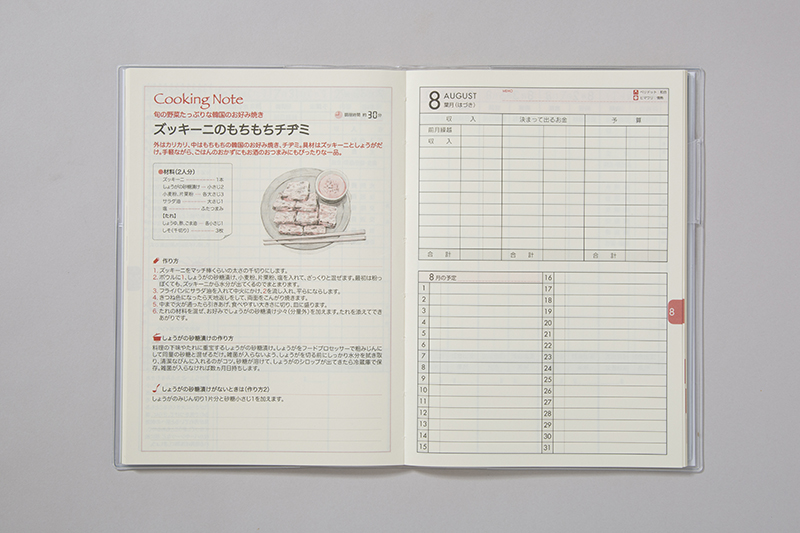 Cooking Note
旬の野菜たっぷりな韓国のお好み焼き
調理時間 約30分
ズッキーニのもちもちチヂミ
外はカリカリ、中はもちもちの韓国のお好み焼き、チヂミ。具材はズッキーニとしょうがだ
け。手軽ながら、ごはんのおかずにもお酒のおつまみにもぴったりな一品。
材料(2人分)
ズッキーニ 1本
しょうがの砂糖漬け 小さじ2
小麦粉、片栗粉 各大さじ3
サラダ油 大さじ1
塩 ふたつまみ
【たれ】
しょうゆ、酢、ごま油 各小さじ1
しそ(千切り) 3枚
作り方
1. ズッキーニをマッチ棒くらいの太さの千切りにします。
2. ボウルに1、しょうがの砂糖漬け、小麦粉、片栗粉、塩を入れて、ざっくりと混ぜます。最初は粉っ
ぽくても、ズッキーニから水分が出てくるのでまとまります。
3. フライパンにサラダ油を入れて中火にかけ、2を流し入れ、平らにならします。
4. きつね色になったら天地返しをして、両面をこんがり焼きます。
5. 中まで火が通ったら引きあげ、食べやすい大きさに切り、皿に盛ります。
6. たれの材料を混ぜ、お好みでしょうがの砂糖漬け少々(分量外)を加えます。たれを添えてでき
あがりです。
しょうがの砂糖漬けの作り方
料理の下味やたれに重宝するしょうがの砂糖漬け。しょうがをフードプロセッサーで粗みじんに
して同量の砂糖と混ぜるだけ。雑菌が入らないよう、しょうがを切る前にしっかり水分を拭き取
り、清潔なびんに入れるのがコツ。砂糖が溶けて、しょうがのシロップが出てきたら冷蔵庫で保
存。雑菌が入らなければ数ヵ月日持ちします。
しょうがの砂糖漬けがないときは(作り方2)
しょうがのみじん切り1片分と砂糖小さじ1を加えます。
8 AUGUST
葉月(はづき)
MEMO
収 入
決まって出るお金
予 算
前月繰越
収 入
合 計
合 計
合 計
8月の予定
1
2
3
4
5
6
7
8
9
10
11
12
13
14
15
16
17
18
19
20
21
22
23
24
25
26
27
28
29
30
31
8